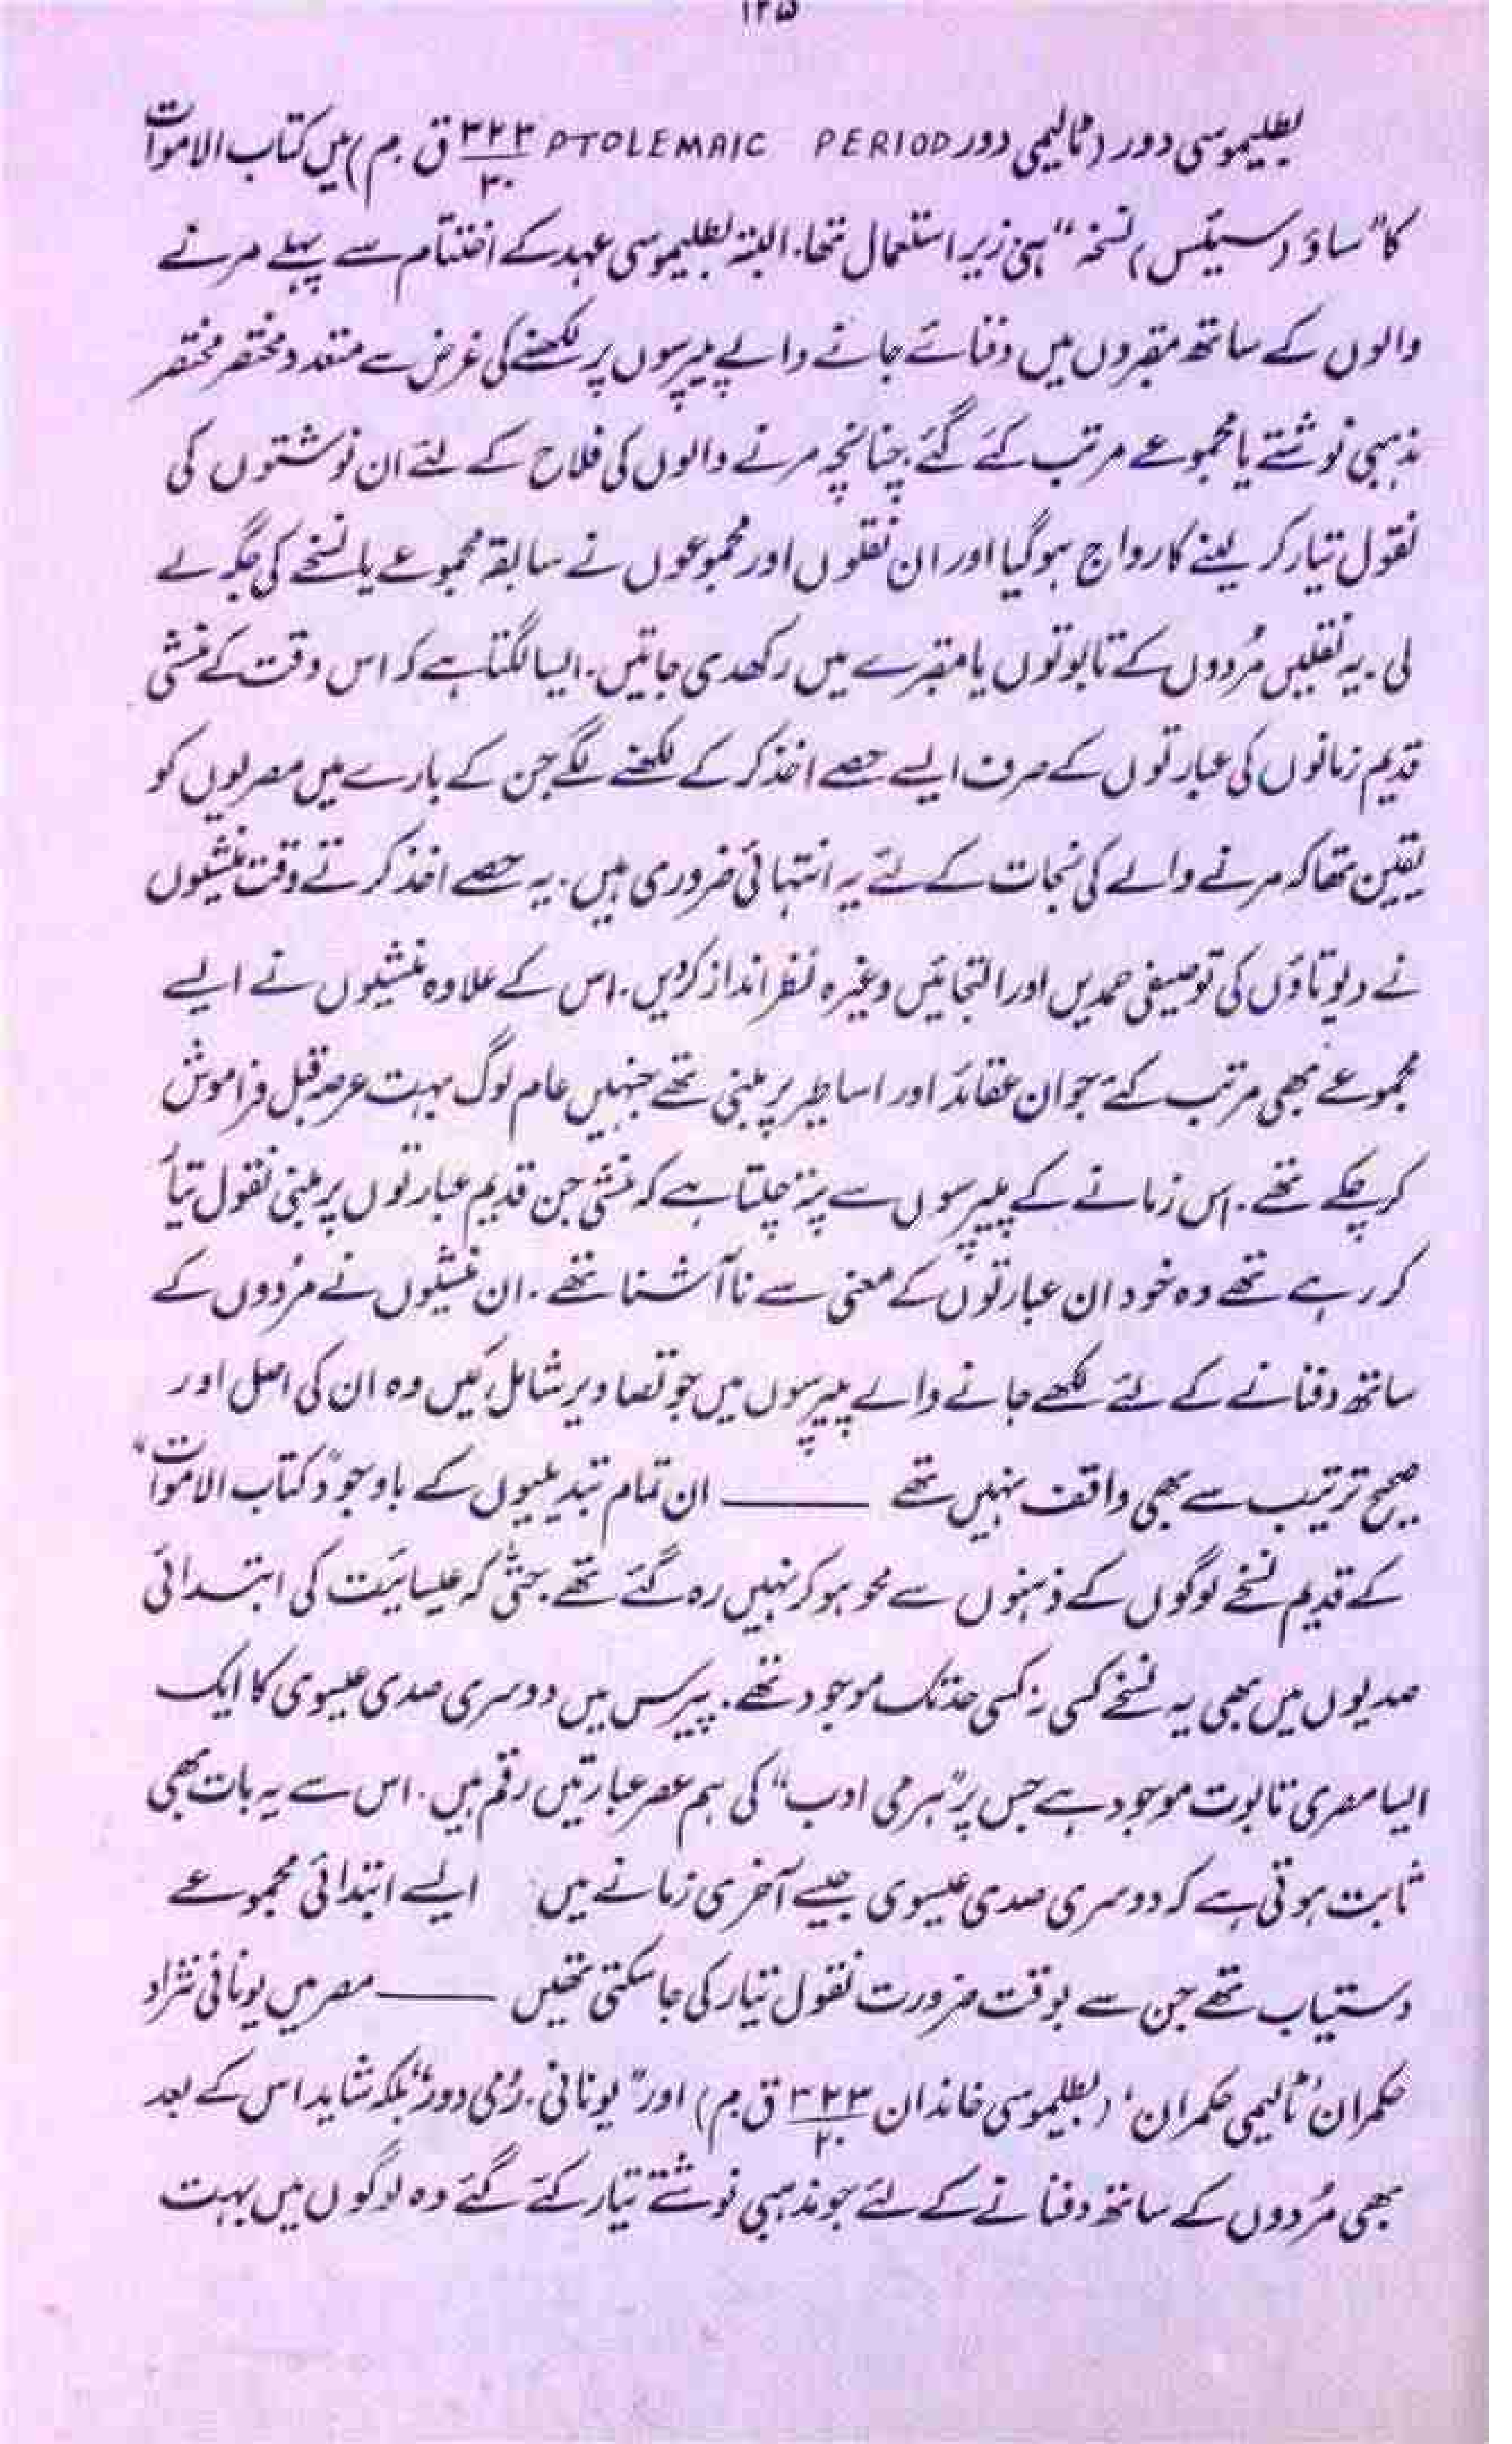 ۱۲۵
بطلیموسی دور (ٹالیمی دور PTOLEMAIC PERIOD ۳۲۳/۳۰ ق.م) میں کتاب الاموات
کا "ساؤ (سیئس) نسخہ" ہی زیر استعمال تھا. البتہ بطلیموسی عہد کے اختتام سے پہلے مرنے
والوں کے ساتھ مقبروں میں دفنائے جانے والے پیپرسوں پر لکھنے کی غرض سے متعدد مختصر مختصر
مذہبی نوشتے یا مجموعے مرتب کئے گئے. چنانچہ مرنے والوں کی فلاح کے لئے ان نوشتوں کی
نقول تیار کر لینے کا رواج ہوگیا اور ان نقلوں اور مجموعوں نے سابقہ مجموعے یا نسخے کی جگہ لے
لی. یہ نقلیں مُردوں کے تابوتوں یا مقبرے میں رکھدی جاتیں. ایسا لگتا ہے کہ اس وقت کے منشی
قدیم زمانوں کی عبارتوں کے صرف ایسے حصے اخذ کر کے لکھنے لگے جن کے بارے میں مصریوں کو
یقین تھا کہ مرنے والے کی نجات کے لئے یہ انتہائی ضروری ہیں. یہ حصے اخذ کرتے وقت منشیوں
نے دیوتاؤں کی توصیفی حمدیں اور التجائیں وغیرہ نظر انداز کردیں. اس کے علاوہ منشیوں نے ایسے
مجموعے بھی مرتب کئے جو ان عقائد اور اساطیر پر مبنی تھے جنہیں عام لوگ بہت عرصہ قبل فراموش
کر چکے تھے. اس زمانے کے پیپرسوں سے پتہ چلتا ہے کہ منشی جن قدیم عبارتوں پر مبنی نقول تیار
کر رہے تھے وہ خود ان عبارتوں کے معنی سے ناآشنا تھے. ان منشیوں نے مُردوں کے
ساتھ دفنانے کے لئے لکھے جانے والے پیپرسوں میں جو تصاویر شامل کیں وہ ان کی اصل اور
صحیح ترتیب سے بھی واقف نہیں تھے ——— ان تمام تبدیلیوں کے باوجود "کتاب الاموات"
کے قدیم نسخے لوگوں کے ذہنوں سے محو ہو کر نہیں رہ گئے تھے. حتیٰ کہ عیسائیت کی ابتدائی
صدیوں میں بھی یہ نسخے کسی نہ کسی حد تک موجود تھے. پیرس میں دوسری صدی عیسوی کا ایک
ایسا مصری تابوت موجود ہے جس پر "ہرمی ادب" کی ہم عصر عبارتیں رقم ہیں. اس سے یہ بات بھی
ثابت ہوتی ہے کہ دوسری صدی عیسوی جیسے آخری زمانے میں ایسے ابتدائی مجموعے
دستیاب تھے جن سے بوقت ضرورت نقول تیار کی جاسکتی تھیں ——— مصر میں یونانی نژاد
حکمران 'ٹالیمی حکمران' (بطلیموسی خاندان ۳۲۳/۳۰ ق.م) اور "یونانی. رُومی دور" بلکہ شاید اس کے بعد
بھی مُردوں کے ساتھ دفنانے کے لئے جو مذہبی نوشتے تیار کئے گئے وہ لوگوں میں بہت